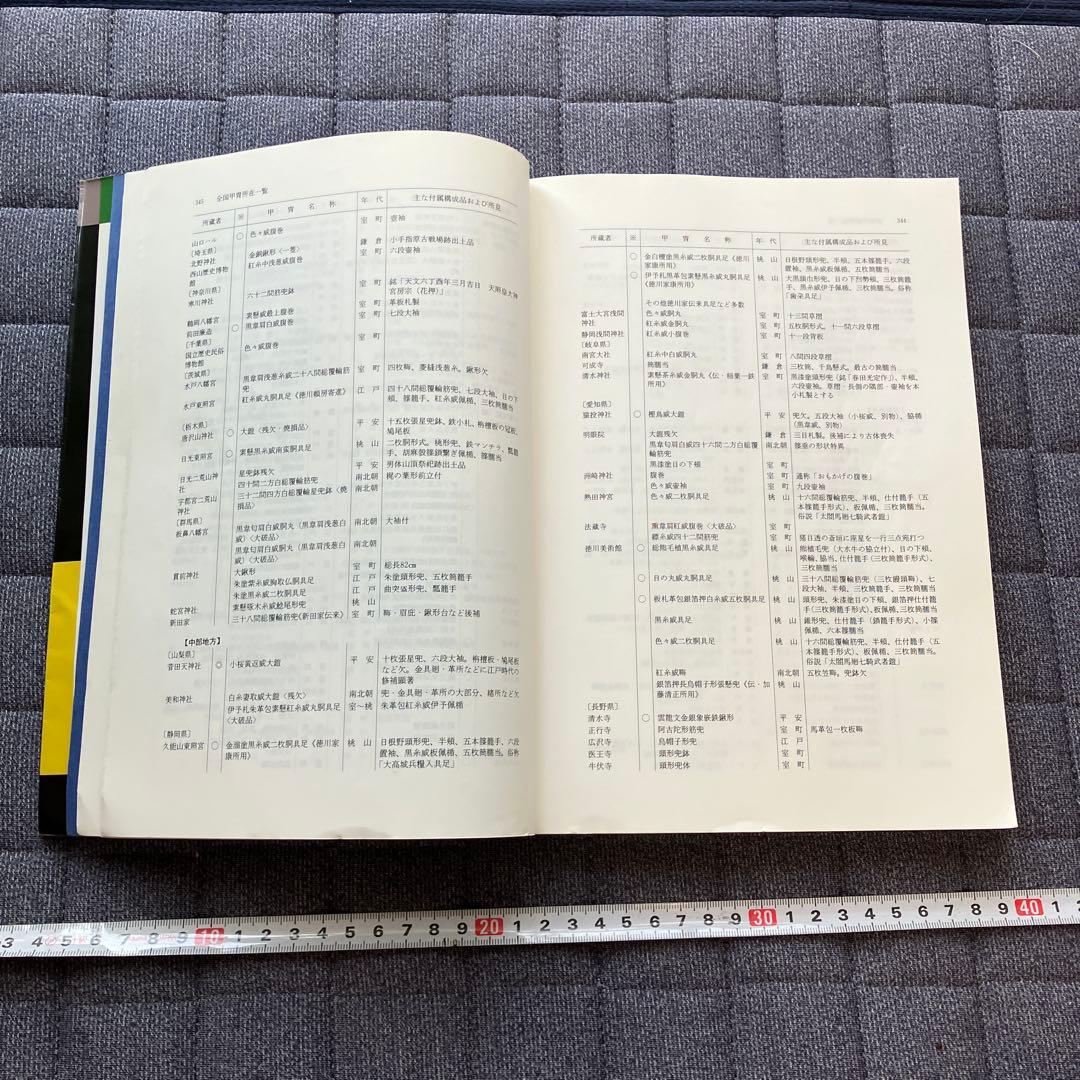 345 全国甲冑所在一覧
所蔵者 ※ 甲冑名称 年代 主な付属構成品および所見
山口ハル ○ 色々威腹巻 室町 壺袖
〔埼玉県〕
北野神社 金銅鍬形〈一隻〉 鎌倉 小手指原古戦場跡出土品
西山歴史博物館 紅糸中浅葱威腹巻 室町 六段壺袖
〔神奈川県〕
寒川神社 六十二間筋兜鉢 室町 銘「天文六丁酉年三月吉日 天照皇大神宮房宗（花押）」
鶴岡八幡宮 素懸威最上腹巻 室町 革板札製
前田廉造 ○ 黒韋肩白威腹巻 室町 七段大袖
〔千葉県〕
国立歴史民俗博物館 色々威腹巻 室町
〔茨城県〕
水戸八幡宮 黒韋肩浅葱糸威二十八間総覆輪筋兜 室町 四枚𩊱、菱縫浅葱糸。鍬形欠
水戸東照宮 紅糸威丸胴具足《徳川頼房寄進》 江戸 四十八間総覆輪筋兜、七段大袖、目の下頰、篠籠手、紅糸威佩楯、三枚筒臑当
〔栃木県〕
唐沢山神社 ○ 大鎧〈残欠・焼損品〉 平安 十五枚張星兜鉢、鉄小札、栴檀板の冠板、鳩尾板
日光東照宮 ○ 素懸黒糸威南蛮胴具足 桃山 二枚胴形式。桃形兜、鉄マンチラ、瓢籠手、胡麻殻篠鎖繫ぎ佩楯、篠臑当
日光二荒山神社 星兜鉢残欠 平安 男体山頂祭祀跡出土品
四十間二方白総覆輪筋兜 南北朝 梶の葉形前立付
宇都宮二荒山神社 三十二間四方白総覆輪星兜鉢〈焼損品〉 南北朝
〔群馬県〕
板鼻八幡宮 黒韋匂肩白威胴丸（黒韋肩浅葱白威）〈大破品〉 南北朝 大袖付
黒韋匂肩白威胴丸（黒韋肩浅葱白威）〈大破品〉 南北朝
貫前神社 大鍬形 室町 総長82cm
朱塗紫糸威胸取仏胴具足 江戸 朱塗頭形兜、五枚筒籠手
朱塗黒糸威二枚胴具足 江戸 曲突盔形兜、瓢籠手
蛇宮神社 素懸啄木糸威鯰尾形兜 桃山
新田家 三十八間総覆輪筋兜《新田家伝来》 室町 𩊱・眉庇・鍬形台など後補
【中部地方】
〔山梨県〕
菅田天神社 ◎ 小桜黄返威大鎧 平安 十枚張星兜、六段大袖。栴檀板・鳩尾板など欠。金具廻・革所などに江戸時代の修補顕著
美和神社 白糸妻取威大鎧〈残欠〉 南北朝 兜・金具廻・革の大部分、緒所など欠
伊予札朱革包素懸紅糸威丸胴具足〈大破品〉 室～桃 朱革包紅糸威伊予佩楯
〔静岡県〕
久能山東照宮 ○ 金溜塗黒糸威二枚胴具足《徳川家康所用》 桃山 日根野頭形兜、半頰、五本篠籠手、六段置袖、黒糸威板佩楯、五枚筒臑当。俗称「大高城兵糧入具足」
344
所蔵者 ※ 甲冑名称 年代 主な付属構成品および所見
○ 金白檀塗黒糸威二枚胴具足《徳川家康所用》 桃山 日根野頭形兜、半頰、五本篠籠手、六段置袖、黒糸威板佩楯、五枚筒臑当
○ 伊予札黒革包素懸黒糸威丸胴具足《徳川家康所用》 桃山 大黒頭巾形兜、目の下烈勢頰、三枚筒籠手、黒糸威伊予佩楯、三枚筒臑当。俗称「歯朶具足」
その他徳川家伝来具足など多数
富士大宮浅間神社 色々威胴丸 室町 十三間草摺
紅糸威金胴丸 室町 五枚胴形式。十一間六段草摺
静岡浅間神社 紅糸威小腹巻 室町 十一段背板
〔岐阜県〕
南宮大社 紅糸中白威胴丸 室町 八間四段草摺
可成寺 筒臑当 鎌倉 三枚筒、千鳥懸式。最古の筒臑当
清水神社 素懸茶糸威金胴丸《伝・稲葉一鉄所用》 室町 黒漆塗頭形兜（銘「春田光定作」）、半頰、六段壺袖。草摺・長側の隅部・壺袖を本小札製とする
〔愛知県〕
猿投神社 ○ 樫鳥威大鎧 平安 兜欠。五段大袖（小桜威、別物）、脇楯（黒韋威、別物）
明眼院 大鎧残欠 鎌倉 三目札製。後補により古体喪失
黒韋匂肩白威四十六間二方白総覆輪筋兜 南北朝 篠垂の形状特異
黒漆塗目の下頰 室町
洲崎神社 腹巻 室町 通称「おもかげの腹巻」
色々威壺袖 室町 九段壺袖
熱田神宮 色々威二枚胴具足 桃山 十六間総覆輪筋兜、半頰、仕付籠手（五本篠籠手形式）、板佩楯、三枚筒臑当。俗説「太閤馬廻七騎武者鎧」
法蔵寺 薫韋肩紅威腹巻〈大破品〉 室町
縹糸威四十二間筋兜 室町 猪目透の斎垣に座星を一行三点宛打つ
徳川美術館 ○ 総熊毛植黒糸威具足 桃山 熊植毛兜（大水牛の脇立付）、目の下頰、喉輪、脇当、仕付籠手（三枚筒籠手形式）、三枚筒臑当
○ 日の丸威丸胴具足 桃山 三十八間総覆輪筋兜（三枚饅頭𩊱）、七段大袖、半頰、三枚筒籠手、三枚筒臑当
○ 板札革包銀箔押白糸威五枚胴具足 桃山 頭形兜、朱漆塗目の下頰、銀箔押仕付籠手（三枚筒籠手形式）、板佩楯、三枚筒臑当
黒糸威具足 桃山 錐形兜、仕付籠手（鎖籠手形式）、小篠佩楯、六本篠臑当
色々威二枚胴具足 桃山 十六間総覆輪筋兜、半頰、仕付籠手（五本篠籠手形式）、板佩楯、三枚筒臑当。俗説「太閤馬廻七騎武者鎧」
紅糸威𩊱 南北朝 五枚笠𩊱。兜鉢欠
銀箔押長烏帽子形張懸兜《伝・加藤清正所用》 桃山
〔長野県〕
清水寺 ○ 雲龍文金銀象嵌鉄鍬形 平安
正行寺 阿古陀形筋兜 室町 馬革一枚板𩊱
広沢寺 烏帽子形兜 江戸
医王寺 頭形兜鉢 室町
牛伏寺 頭形兜体 室町
3 4 5 6 7 8 9 10 1 2 3 4 5 6 7 8 9 20 1 2 3 4 5 6 7 8 9 30 1 2 3 4 5 6 7 8 9 40 1 2